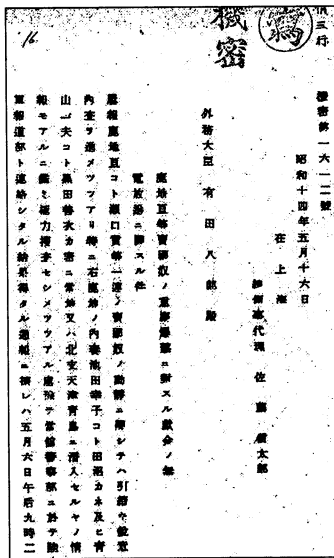 寫
機密
機密第一六一二號
昭和十四年五月十六日
在上海
總領事代理 佐藤 信太郎
外務大臣 有田八郎殿
鹿地亘等賣國奴ノ重慶爆撃ニ對スル ノ無
電放送ニ關スル件
鹿地亘コト瀬口貢等一連ノ賣國奴ノ動靜ニ關シテハ引續キ鋭意
内査ヲ進メツツアリ特ニ右鹿地ノ内妻池田幸子コト田沼カネ及ヒ青
山一夫コト黒田善次カ密ニ當地又ハ北支天津青島ニ潛入セルヤノ情
報モアルニ鑑ミ極力捜査セシメツツアル處 當館警察部ニ於テ陸
軍報道部ト連絡シタル結果得タル通報ニ依レハ五月六日午后九時二
16